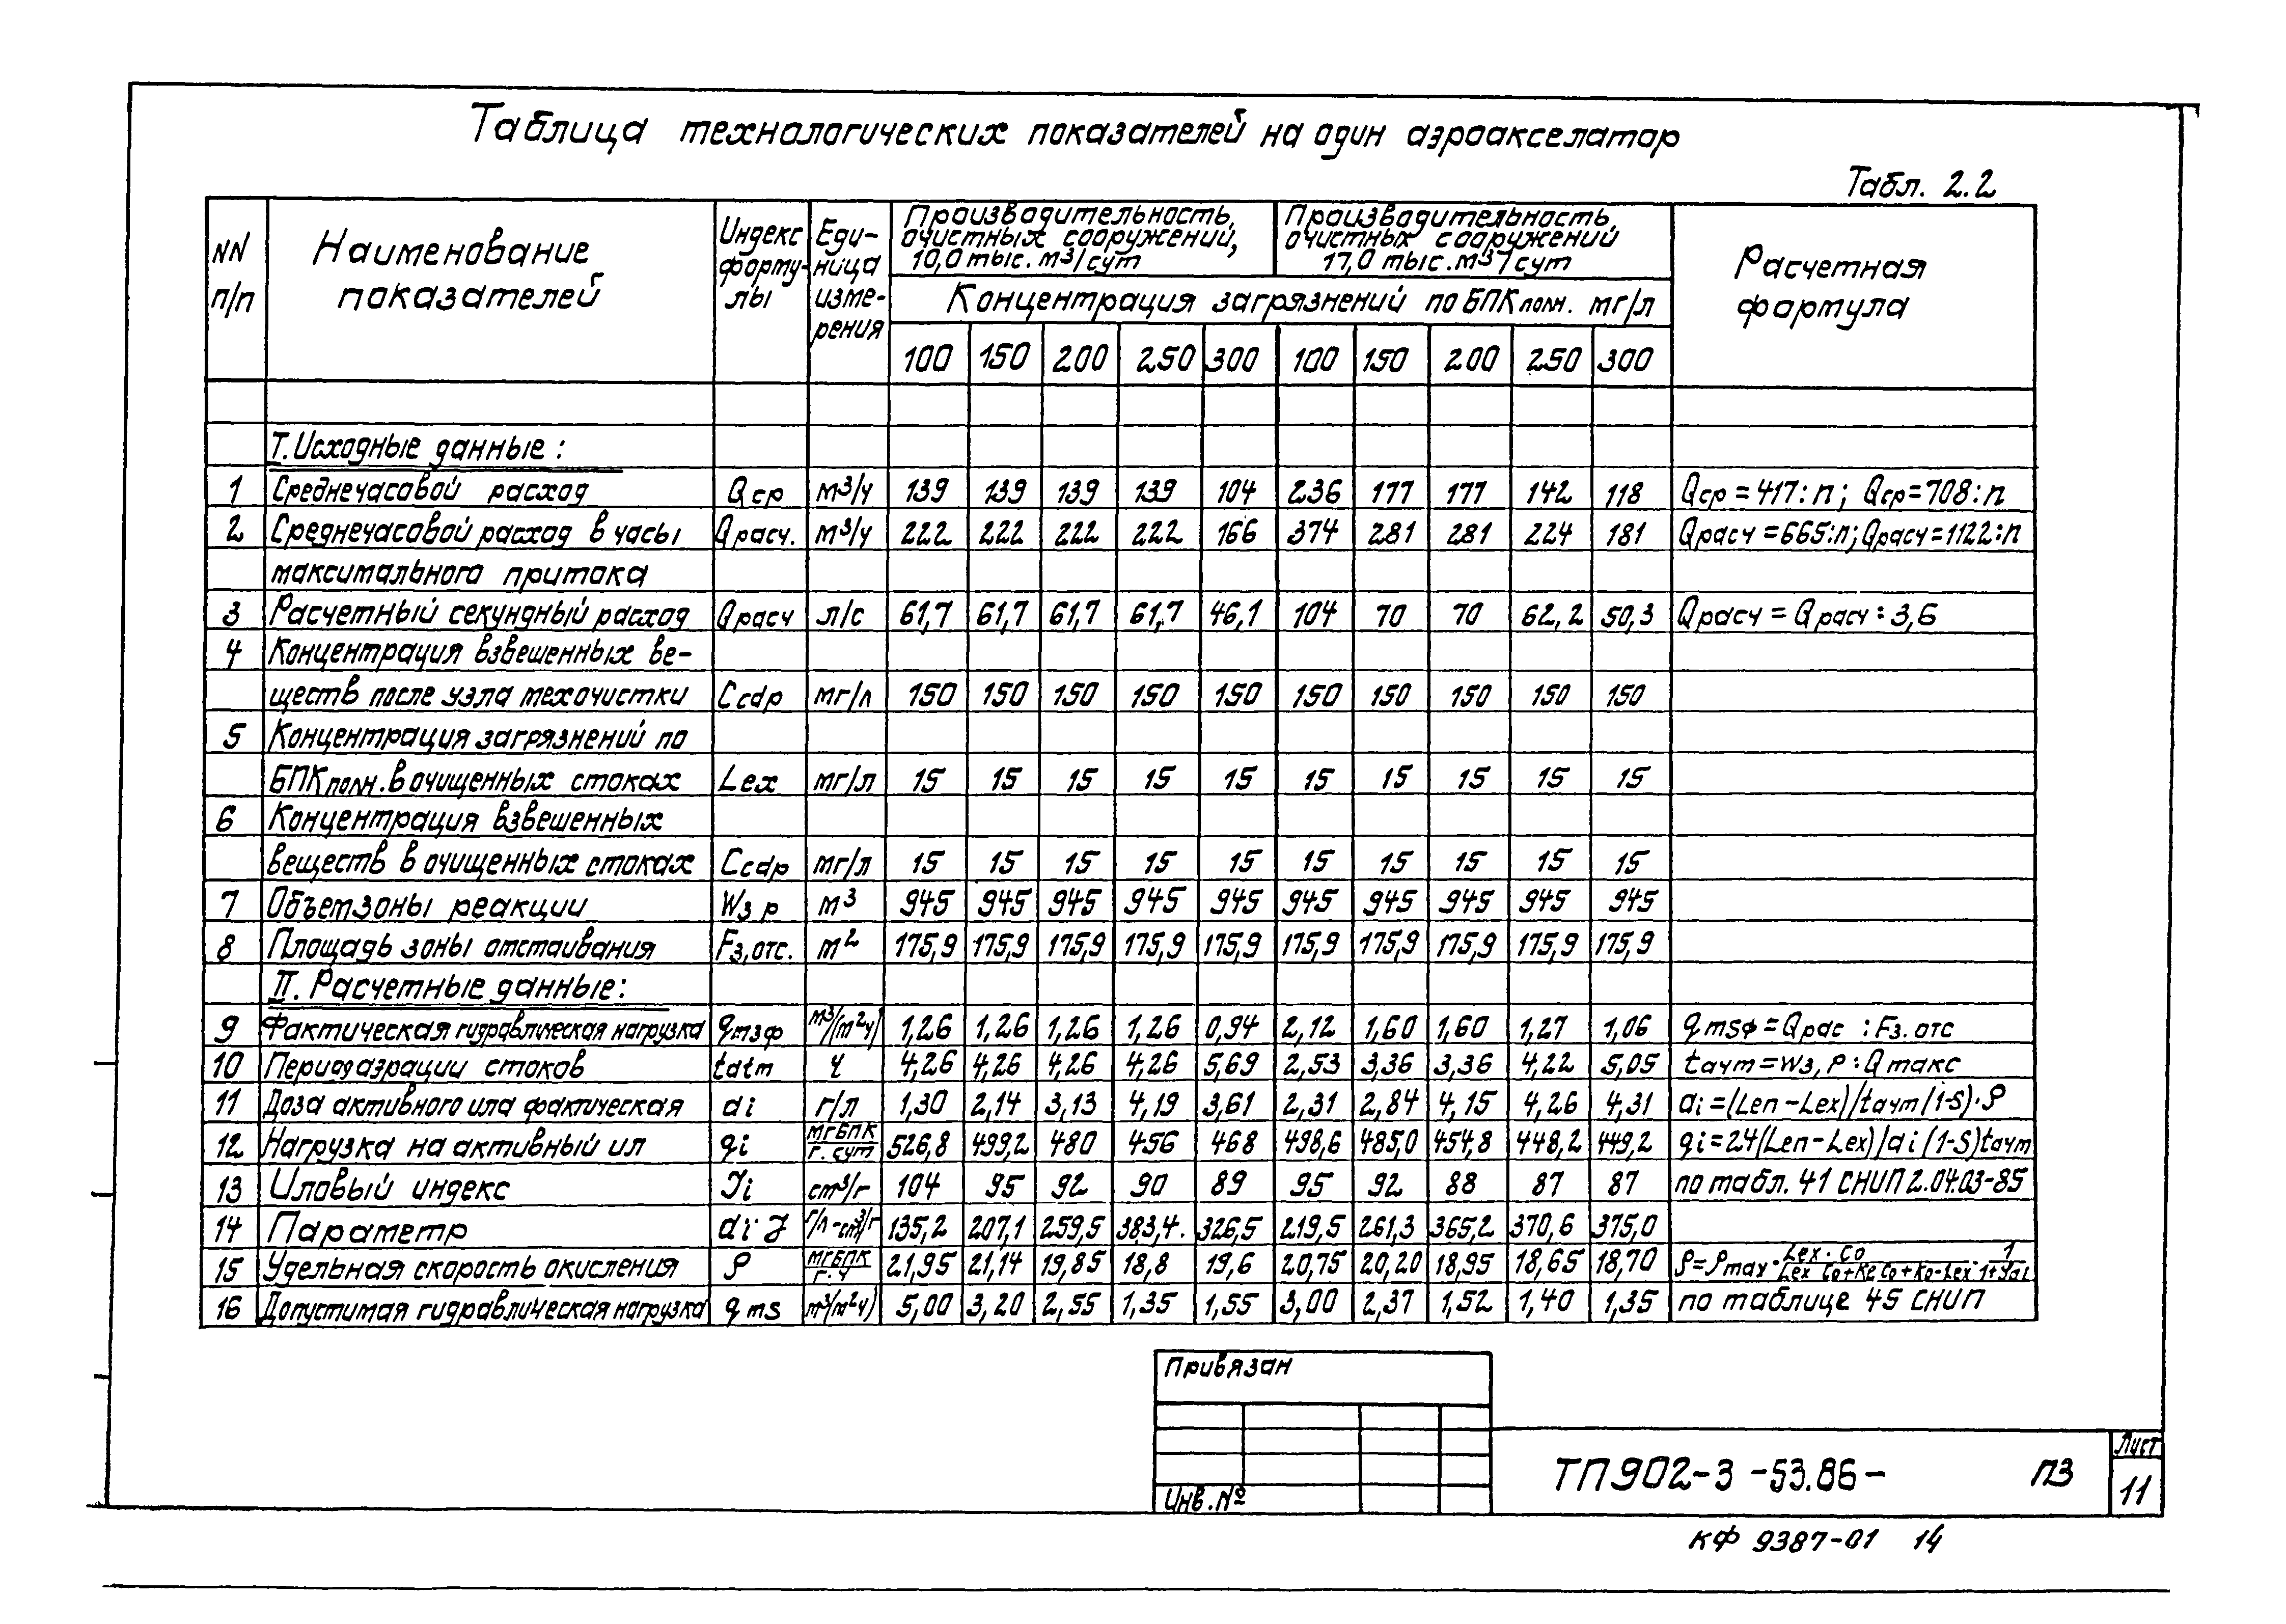 Таблица технологических показателей на один аэроакселатор
Табл. 2.2
NN п/п
Наименование показателей
Индекс форму-лы
Еди-ница изме-рения
Производительность, очистных сооружений, 10,0 тыс. м3/сут
Производительность, очистных сооружений 17,0 тыс. м3/сут
Расчетная формула
Концентрация загрязнений по БПКполн. мг/л
100 150 200 250 300 100 150 200 250 300
I. Исходные данные:
1 Среднечасовой расход Qср м3/ч 139 139 139 139 104 236 177 177 142 118 Qср = 417:п; Qср=708:п
2 Среднечасовой расход в часы Qрасч. м3/ч 222 222 222 222 166 374 281 281 224 181 Qрасч =665:п; Qрасч=1122:п
максимального притока
3 Расчетный секундный расход Qрасч л/с 61,7 61,7 61,7 61,7 46,1 104 70 70 62,2 50,3 Qрасч = Qрасч : 3,6
4 Концентрация взвешенных ве-
ществ после узла мехочистки Ccdp мг/л 150 150 150 150 150 150 150 150 150 150
5 Концентрация загрязнений по
БПКполн. в очищенных стоках Lex мг/л 15 15 15 15 15 15 15 15 15 15
6 Концентрация взвешенных
веществ в очищенных стоках Ccdp мг/л 15 15 15 15 15 15 15 15 15 15
7 Объем зоны реакции Wз р м3 945 945 945 945 945 945 945 945 945 945
8 Площадь зоны отстаивания Fз,отс. м2 175,9 175,9 175,9 175,9 175,9 175,9 175,9 175,9 175,9 175,9
II. Расчетные данные:
9 Фактическая гидравлическая нагрузка qmзф м3/(м2ч) 1,26 1,26 1,26 1,26 0,94 2,12 1,60 1,60 1,27 1,06 qmsф = Qрас : Fз.отс
10 Период аэрации стоков tatm ч 4,26 4,26 4,26 4,26 5,69 2,53 3,36 3,36 4,22 5,05 tачт = Wз,р : Q макс
11 Доза активного ила фактическая ai г/л 1,30 2,14 3,13 4,19 3,61 2,31 2,84 4,15 4,26 4,31 ai = (Len - Lex)/tачт(1-S)·ρ
12 Нагрузка на активный ил qi мгБПК/г.сут 526,8 499,2 480 456 468 498,6 485,0 454,8 448,2 449,2 qi=24(Len-Lex)/ai(1-S)tачт
13 Иловый индекс Ji см3/г 104 95 92 90 89 95 92 88 87 87 по табл. 41 СНИП 2.04.03-85
14 Параметр ai J г/л-см3/г 135,2 207,1 259,5 383,4. 326,5 219,5 261,3 365,2 370,6 375,0
15 Удельная скорость окисления ρ мгБПК/г.ч 21,95 21,14 19,85 18,8 19,6 20,75 20,20 18,95 18,65 18,70 ρ=ρmax · Lex·Co/Lex Co+Ke Co+Ko-Lex · 1/1+φai
16 Допустимая гидравлическая нагрузка qms м3/(м2ч) 5,00 3,20 2,55 1,35 1,55 3,00 2,37 1,52 1,40 1,35 по таблице 45 СНИП
Привязан
Инв. №
ТП 902-3 -53.86- ПЗ
Лист
11
КФ 9387-01 14